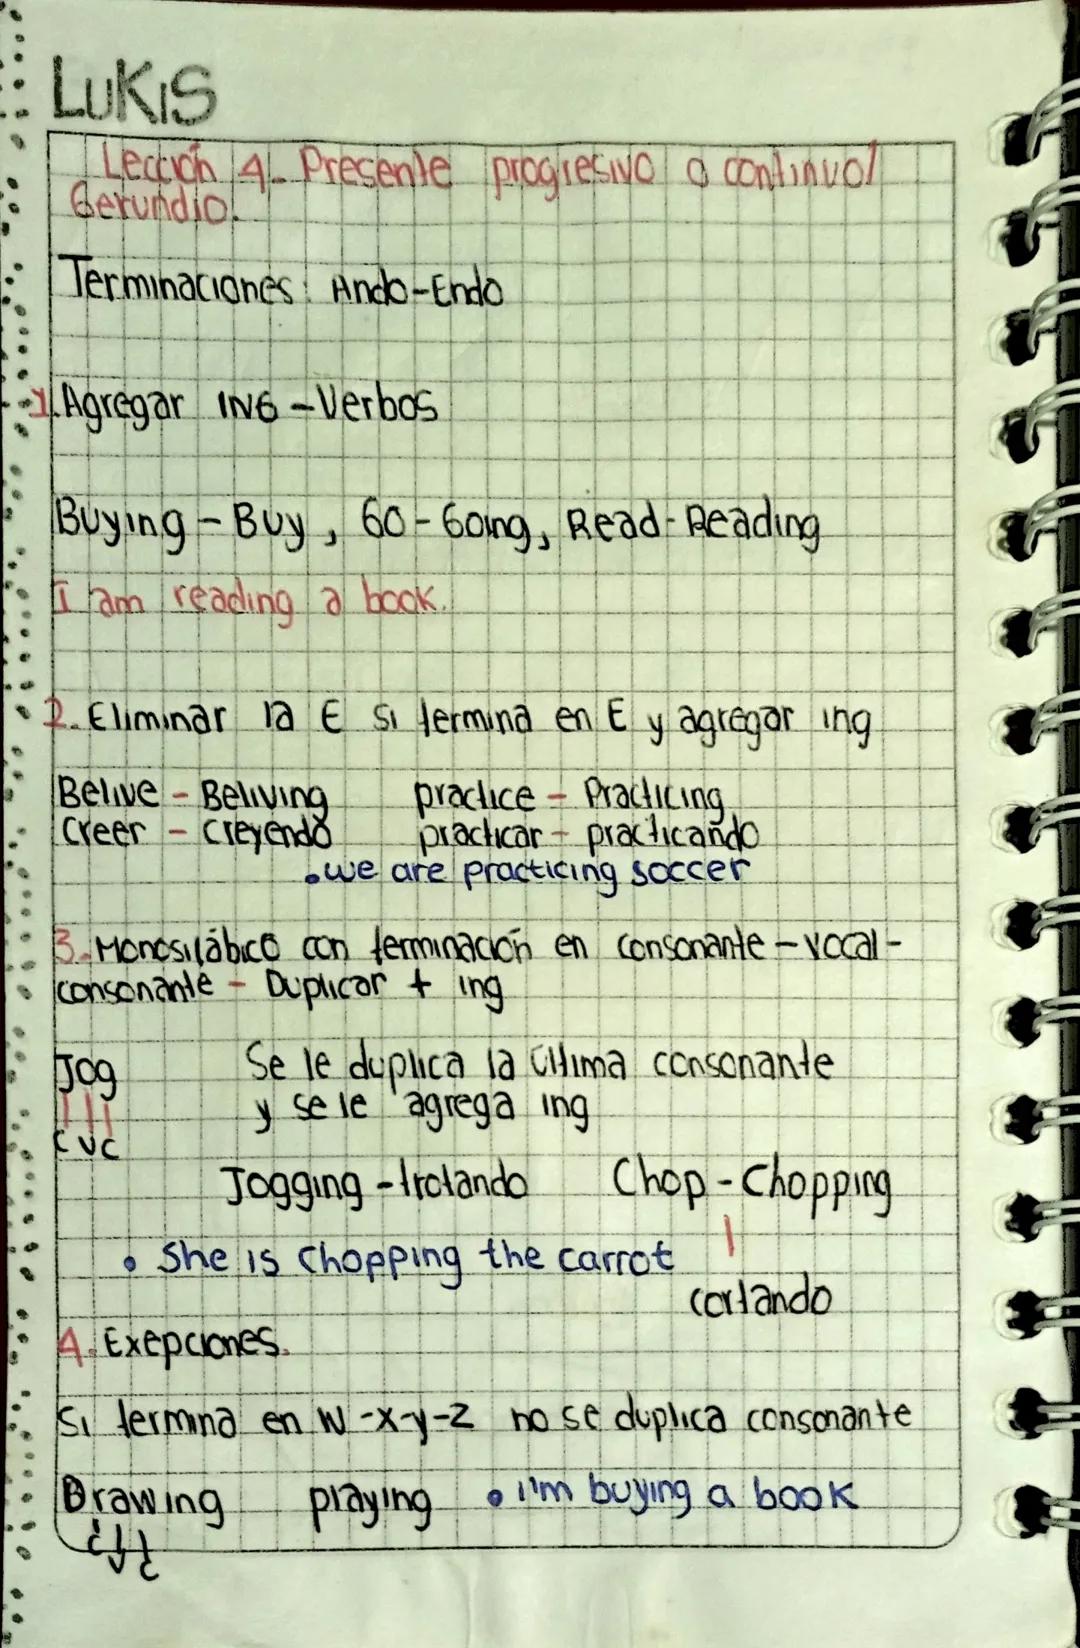 LUKIS
Lección 4- Presente progresivo o continuo/
Gerundio.
Terminaciones: Ando-Endo
1.Agregar ING - Verbos
Buying - Buy, Go - Going, Read - Reading
I am reading a book.
2. Eliminar la E si termina en E y agregar ing
Belive - Beliving practice - Practicing
Creer - Creyendo practicar - practicando
•we are practicing soccer
3. Monosilábico con terminación en consonante - vocal -
consonante - Duplicar + ing
Jog Se le duplica la última consonante
y se le agrega ing
C V C
Jogging - trotando Chop - Chopping
• She is chopping the carrot
cortando
4. Exepciones.
Si termina en W -x-y-z no se duplica consonante
Drawing playing • I'm buying a book
C V C